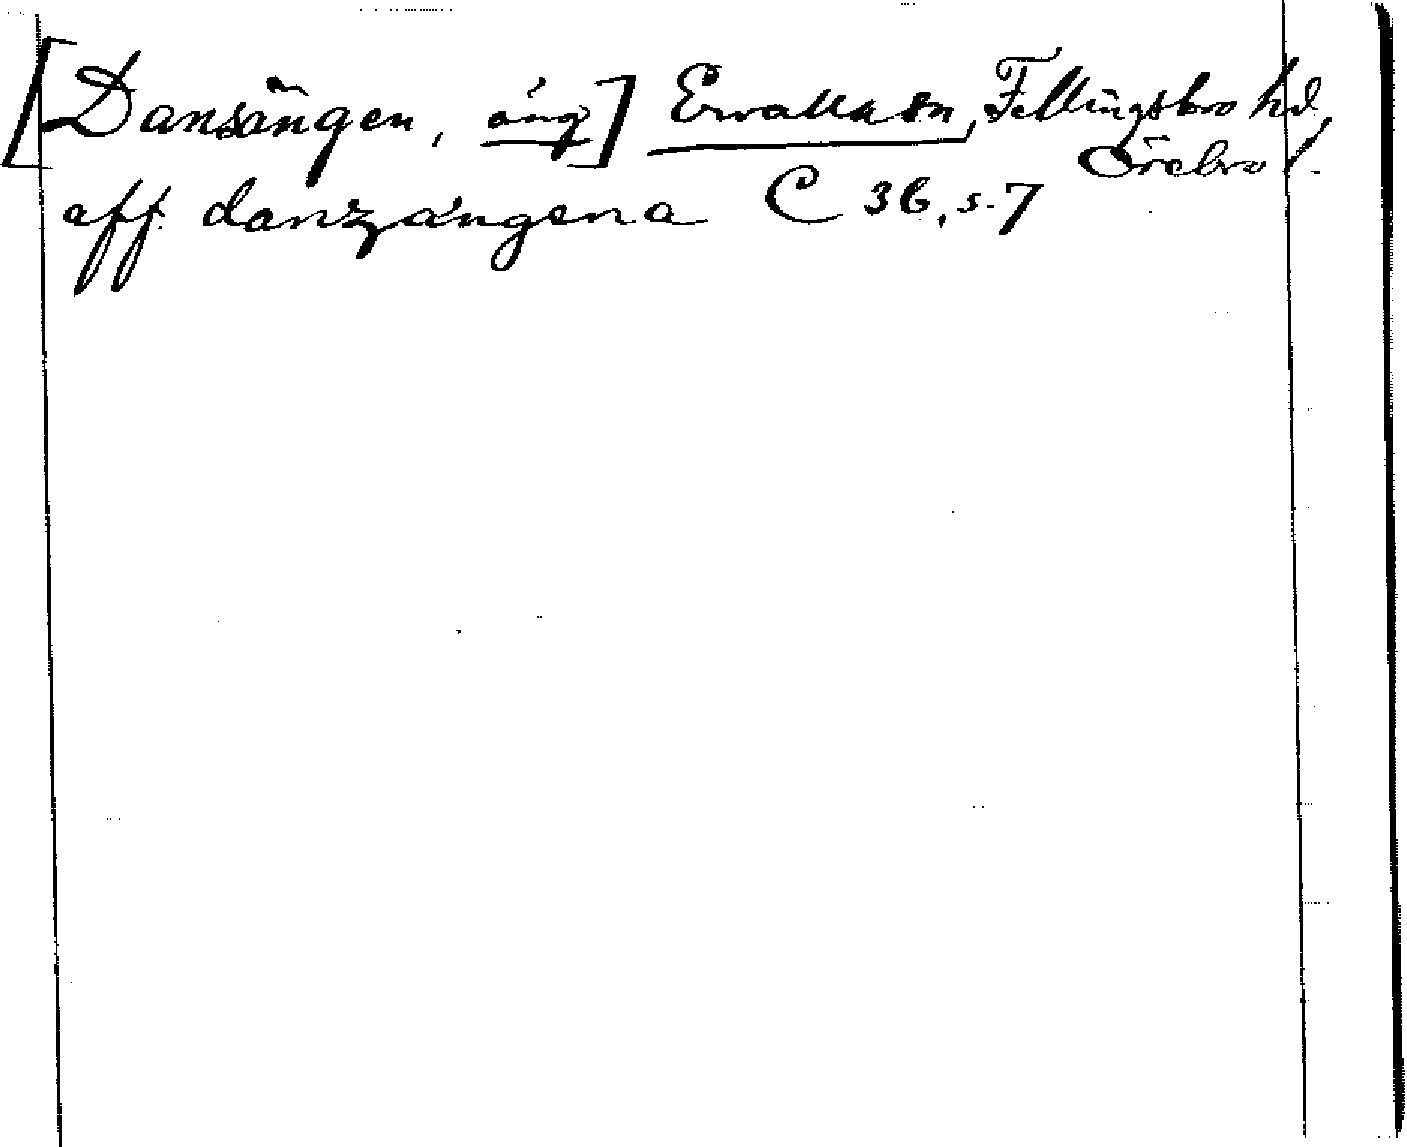 [Dansängen, äng] Ervalla sn, Fellingsbro hd,
Örebro l.
aff danzängena C 36, s. 7